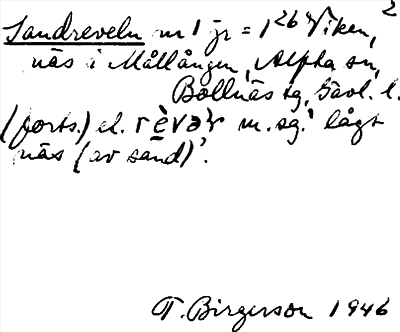 2
Sandreveln nr 1 jr = 1 26 Viken,
näs i Mållången, Alfta sn,
Bollnäs tg, Gävl. l.
(forts.) el. rὲvəɽ m. sg.' lågt
näs (av sand)'.
T. Birgerson 1946